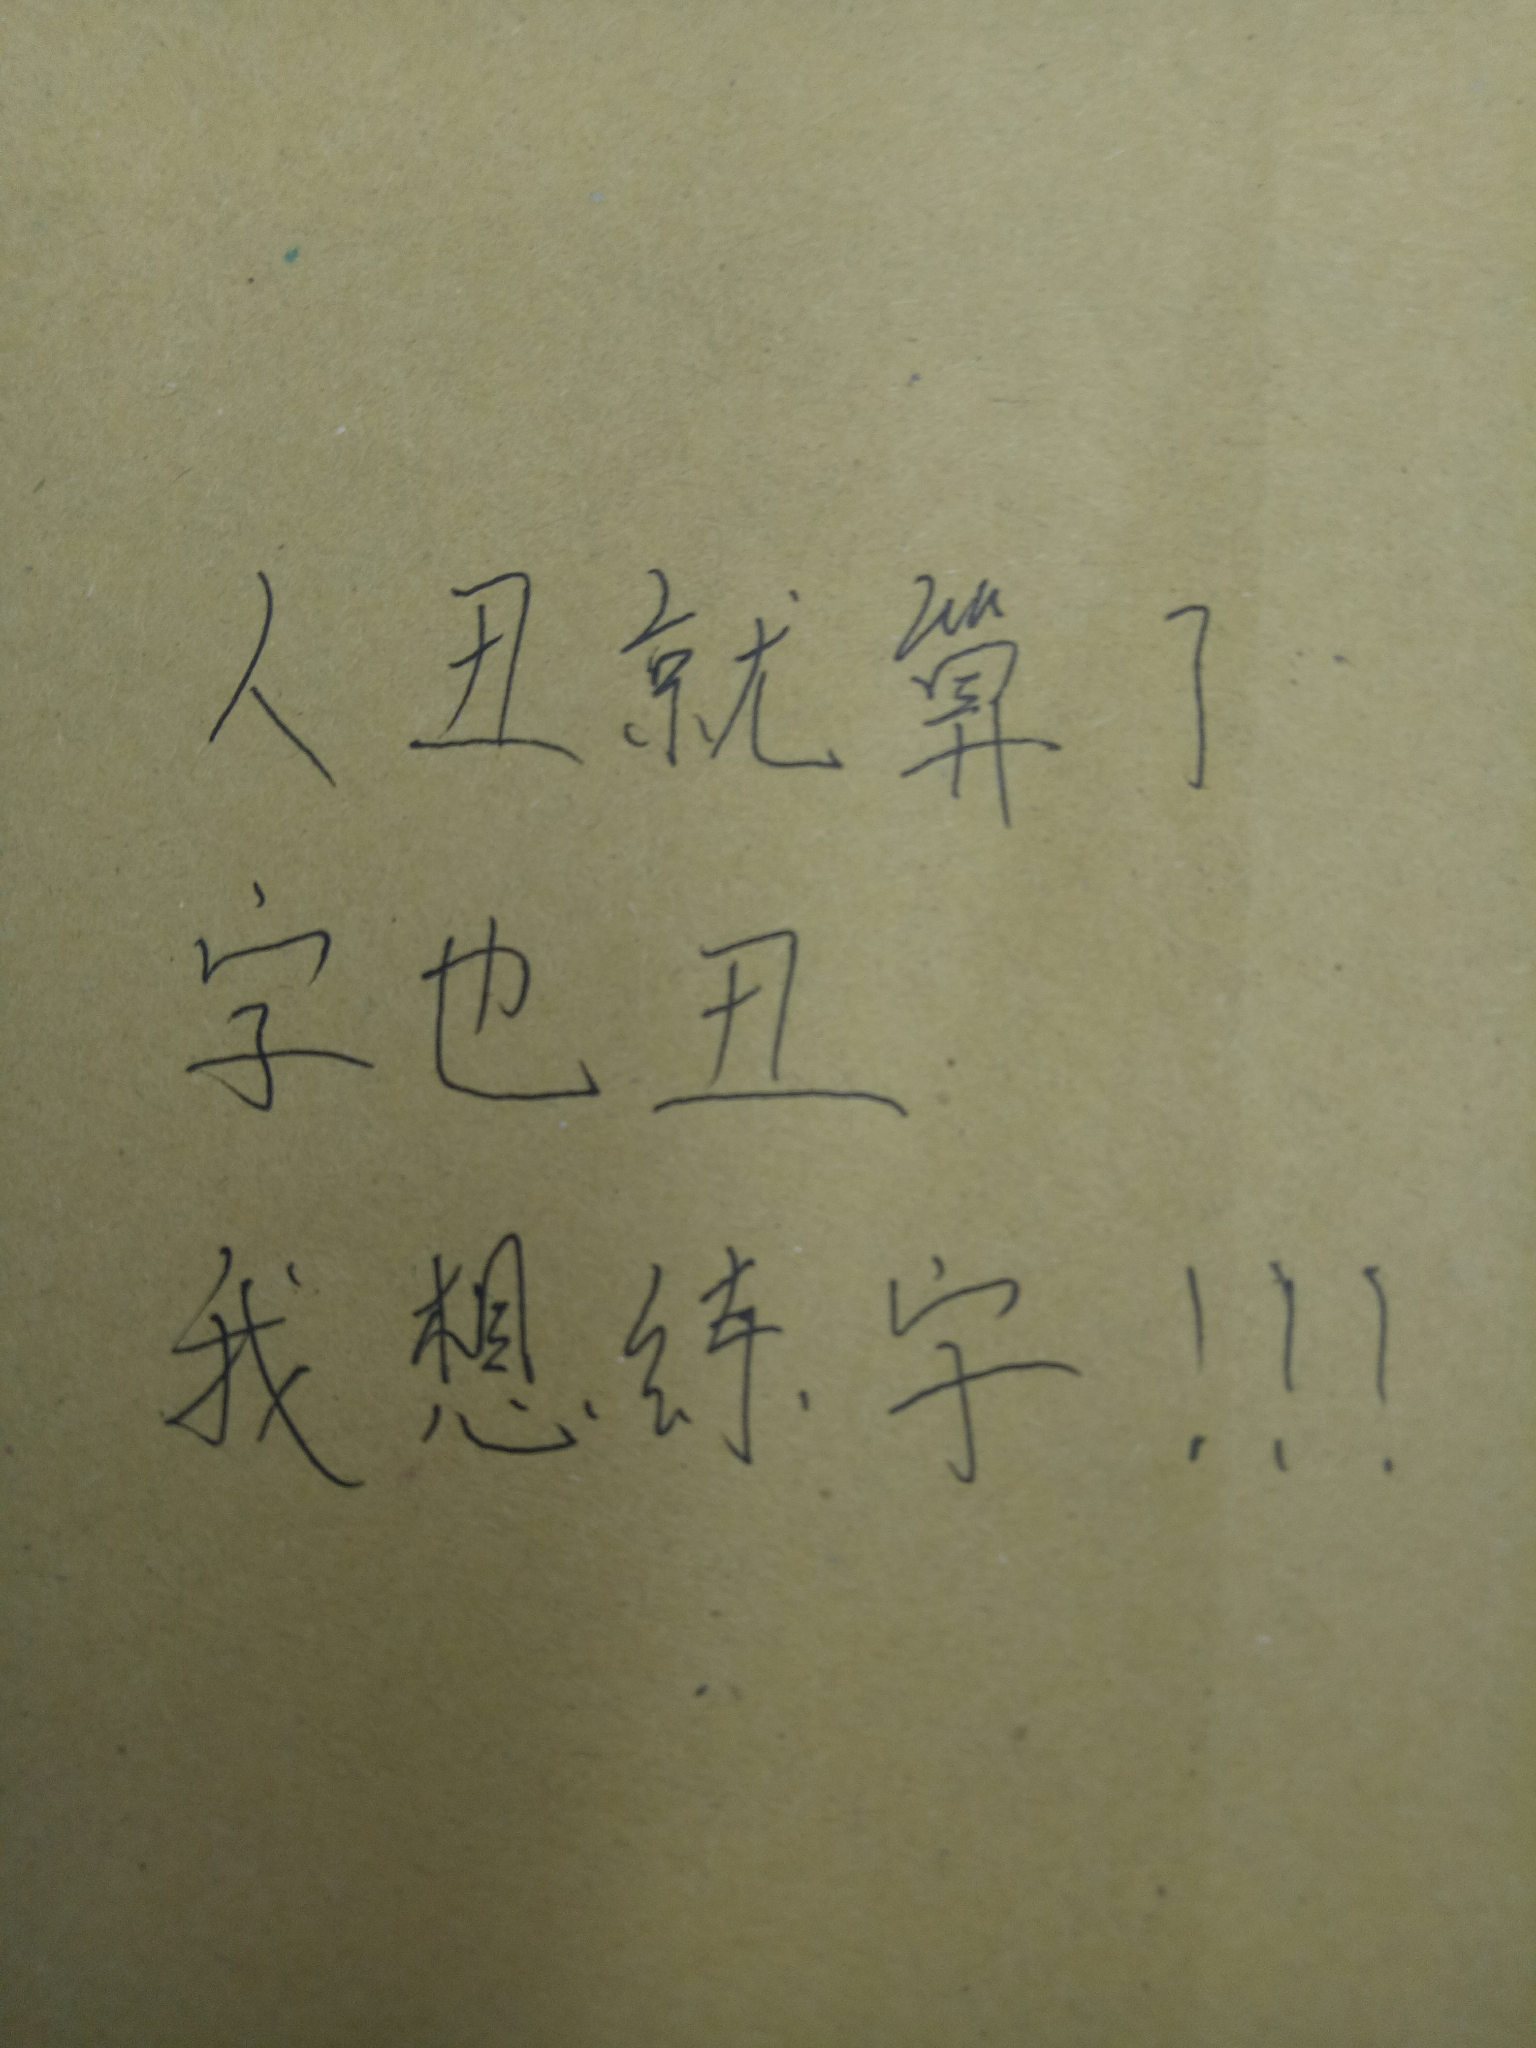 人丑就算了
字也丑
我想练字!!!